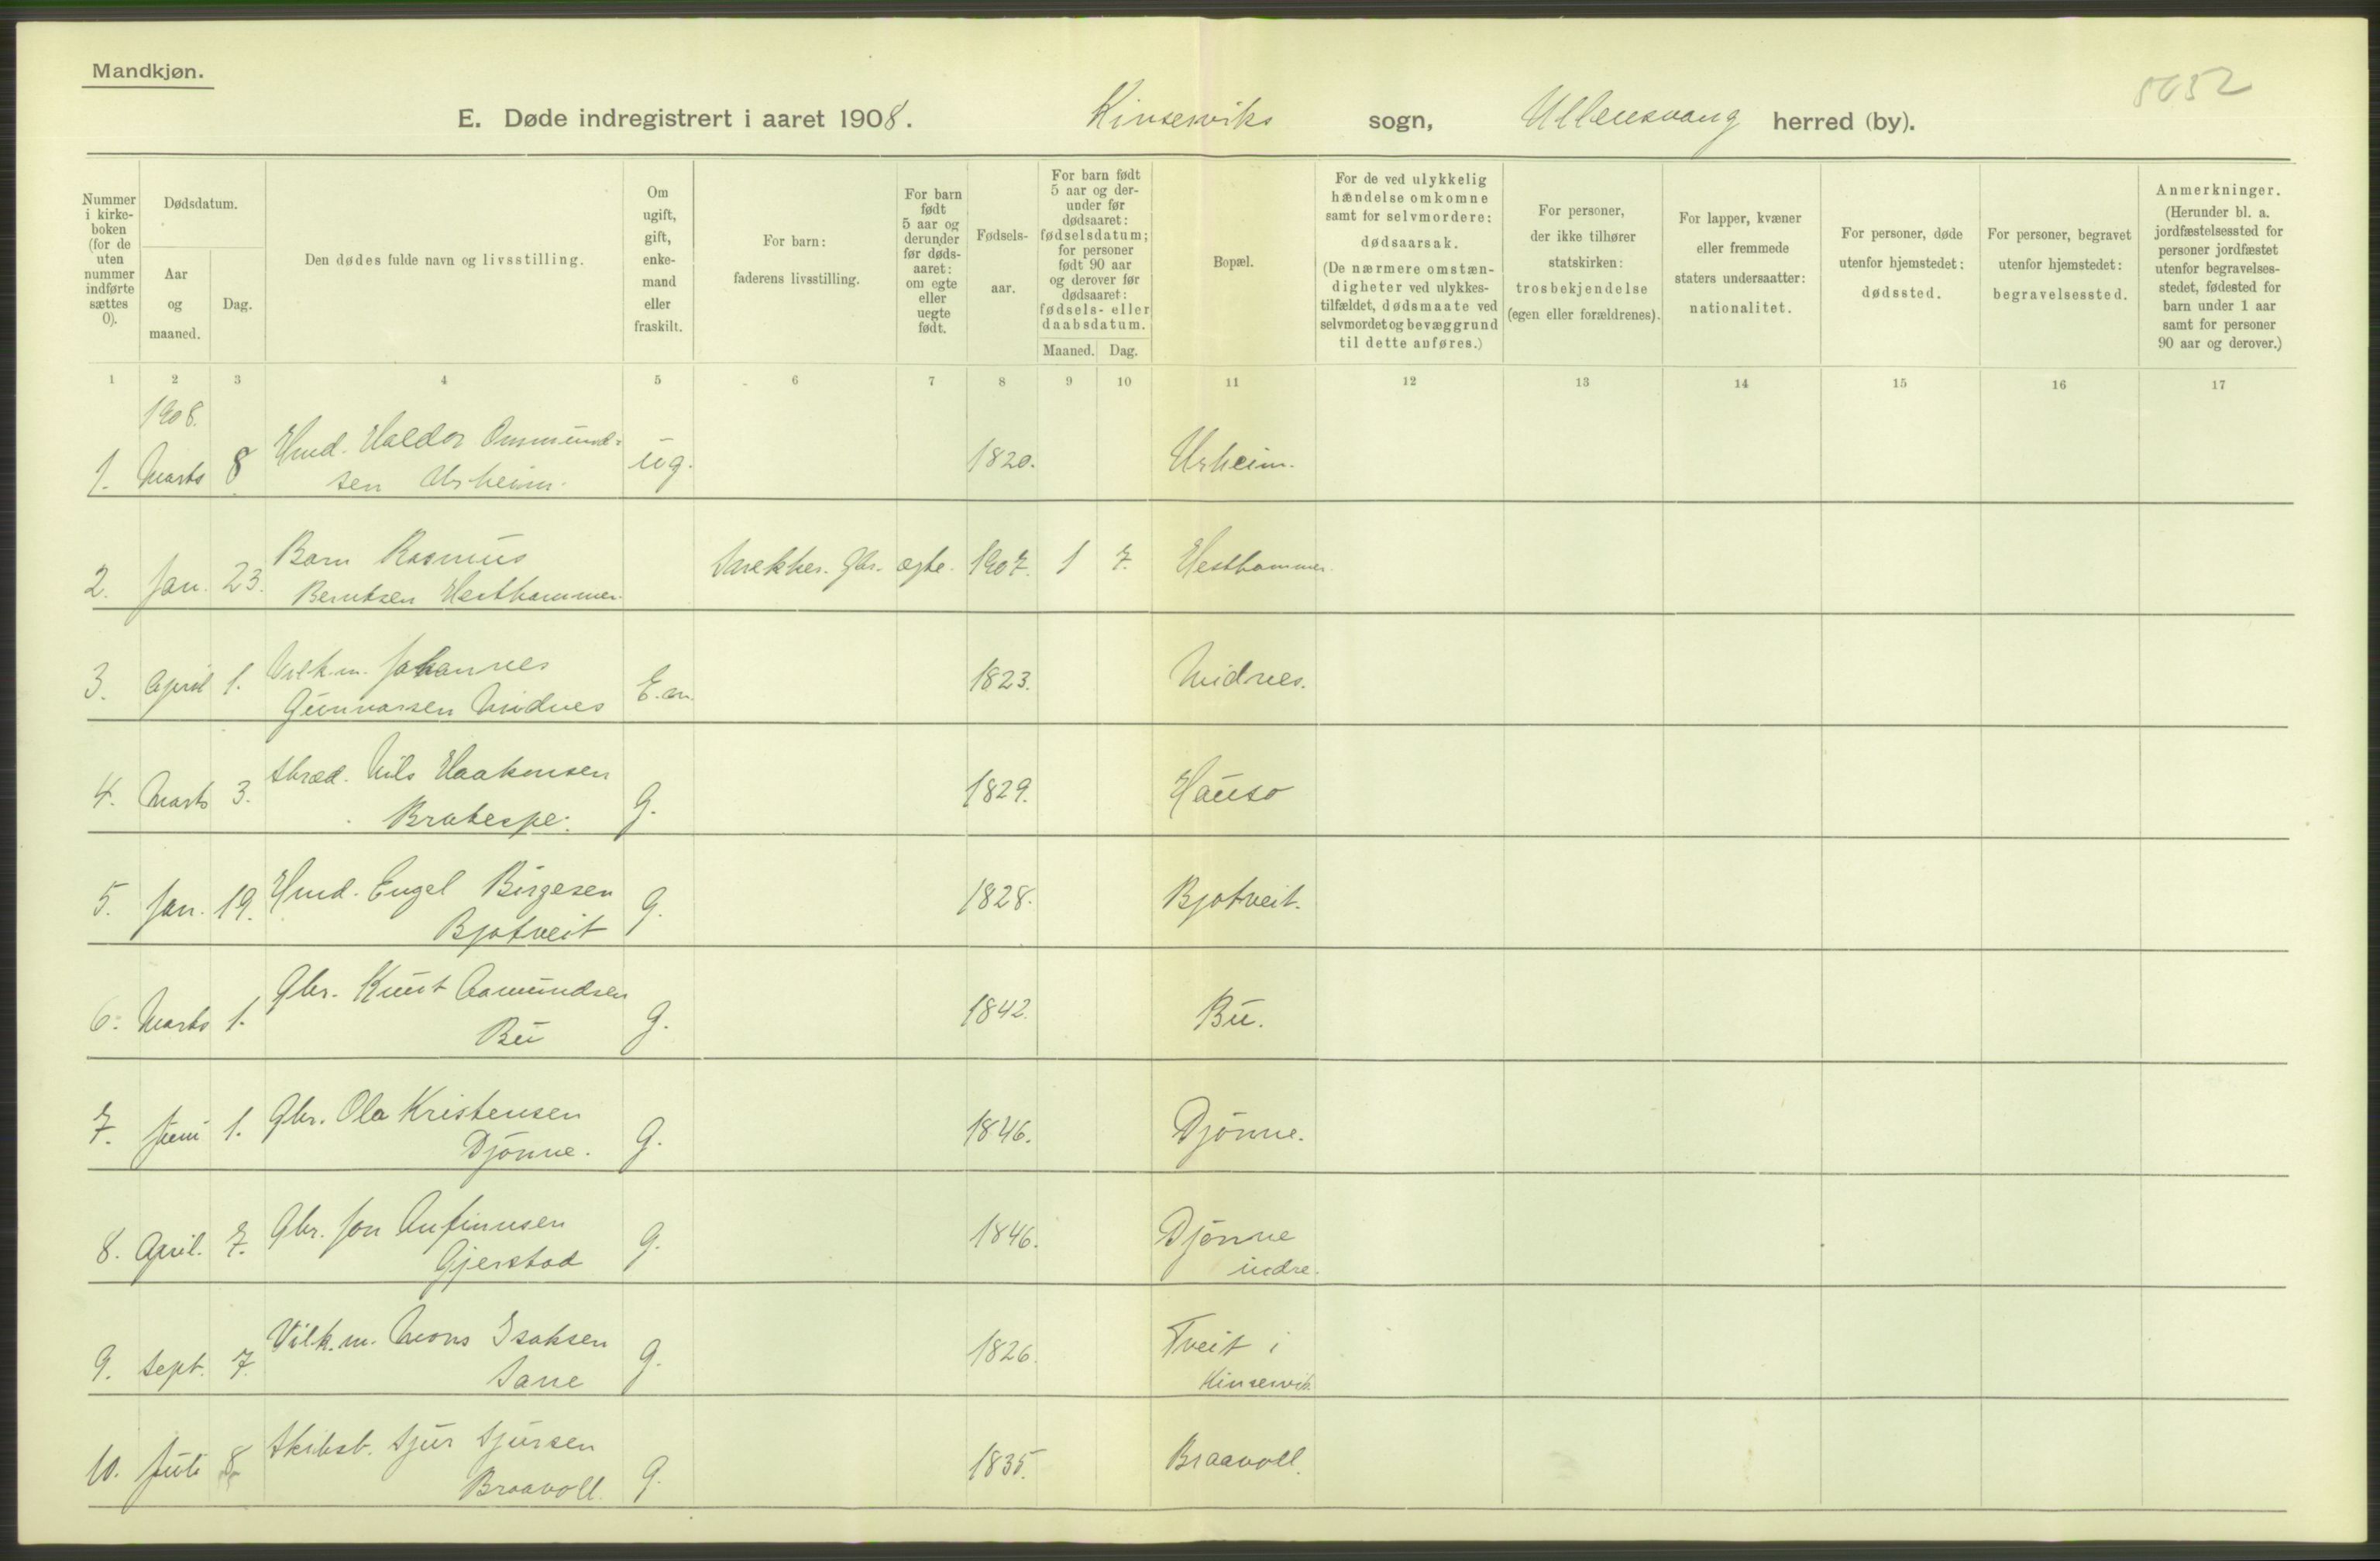 Mandkjøn.
5652
E. Døde indregistrert i aaret 1908. Kinserviks sogn, Ullensvang herred (by).
Nummer i kirke-boken (for de uten nummer indførte sættes 0).
Dødsdatum.
Aar og maaned.
Dag.
Den dødes fulde navn og livsstilling.
Om ugift, gift, enke-mand eller fraskilt.
For barn: faderens livsstilling.
For barn født 5 aar og derunder før døds-aaret: om egte eller uegte født.
Fødsels-aar.
For barn født 5 aar og der-under før dødsaaret: fødselsdatum; for personer født 90 aar og derover før dødsaaret: fødsels- eller daabsdatum.
Maaned. Dag.
Bopæl.
For de ved ulykkelig hændelse omkomne samt for selvmordere: dødsaarsak. (De nærmere omstæn-digheter ved ulykkes-tilfældet, dødsmaate ved selvmordet og bevæggrund til dette anføres.)
For personer, der ikke tilhører statskirken: trosbekjendelse (egen eller forældrenes).
For lapper, kvæner eller fremmede staters undersaatter: nationalitet.
For personer, døde utenfor hjemstedet: dødssted.
For personer, begravet utenfor hjemstedet: begravelsessted.
Anmerkninger. (Herunder bl. a. jordfæstelsessted for personer jordfæstet utenfor begravelses-stedet, fødested for barn under 1 aar samt for personer 90 aar og derover.)
1 2 3 4 5 6 7 8 9 10 11 12 13 14 15 16 17
1908.
1. Marts 8 Hmd. Haldor Ommund-
sen Urheim. ug. 1820. Urheim.
2. Jan. 23. Barn Rasmus
Berntsen Hesthammer. Snekker. Gbr. egte. 1907. 1 7. Hesthammer.
3. April 1. Vilk.m. Johannes
Gunnarsen Midnes E.m. 1823. Midnes.
4. Marts 3. Stræd. Nils Haakonsen
Bratespe. G. 1829. Hauso
5. Jan. 19. Hmd. Engel Birgesen
Bjotveit G. 1828. Bjotveit.
6. Marts 1. Gbr. Knut Aamundsen
Bu G. 1842. Bu.
7. Juni 1. Gbr. Ola Kristensen
Djønne. G. 1846. Djønne.
8. April. 7. Gbr. Jon Anfinnsen
Gjerstad G. 1846. Djønne
indre.
9. Sept. 7. Vilk.m. Mons Isaksen
Sane G. 1826. Tveit i
Kinservik.
10. Juli 8 Skibsb. Sjur Sjursen
Braavoll. G. 1835. Braavoll.